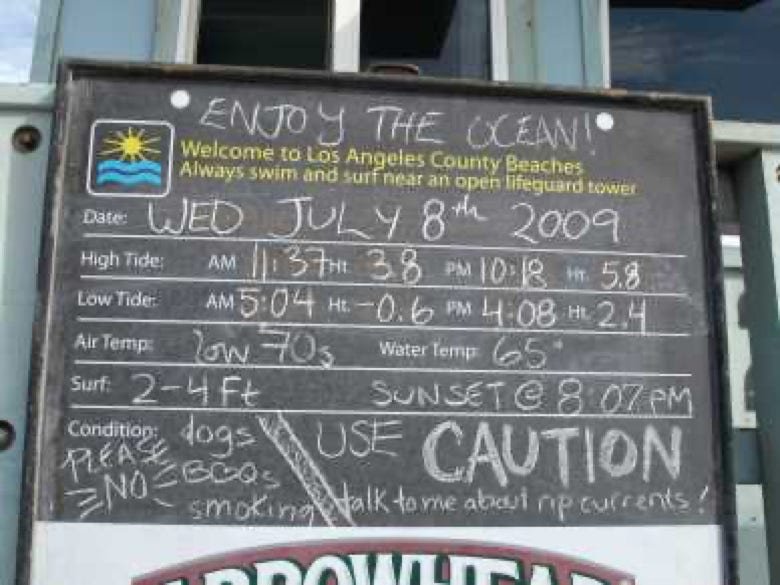 ENJOY THE OCEAN!
Welcome to Los Angeles County Beaches
Always swim and surf near an open lifeguard tower
Date: WED JULY 8th 2009
High Tide: AM 11:37 Ht. 3.8 PM 10:18 Ht. 5.8
Low Tide: AM 5:04 Ht. -0.6 PM 4:08 Ht. 2.4
Air Temp: low 70s Water Temp: 65°
Surf: 2-4 Ft SUNSET @ 8:07 PM
Condition: dogs USE CAUTION
PLEASE NO BBQs
smoking talk to me about rip currents!
ARROWHEAD